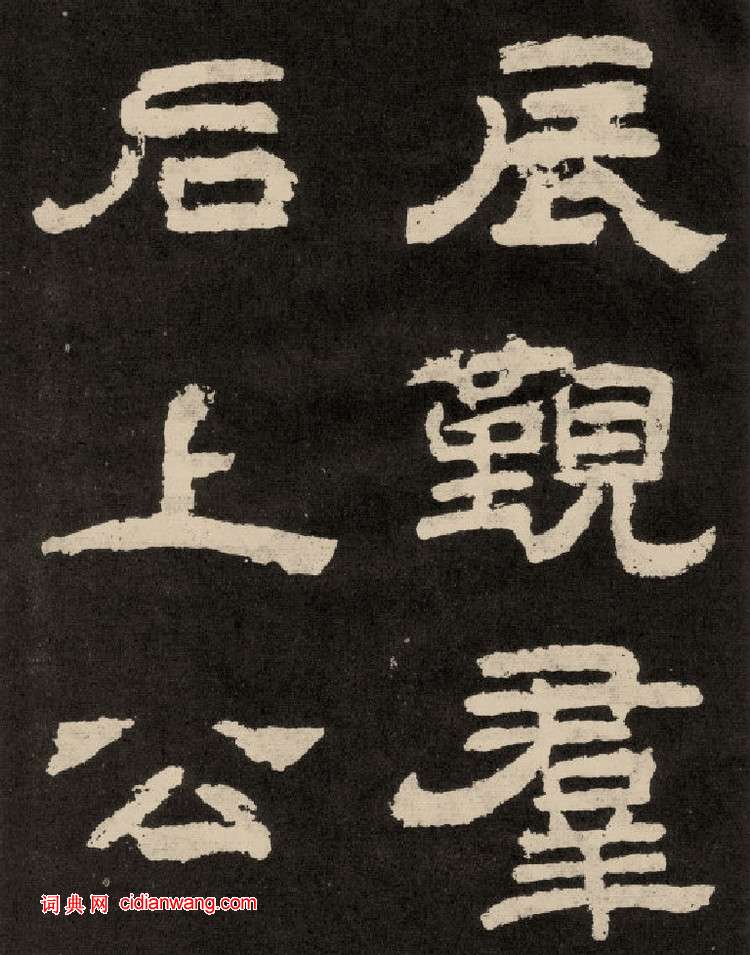 辰覲羣
后上公
词典网 cidianwang.com